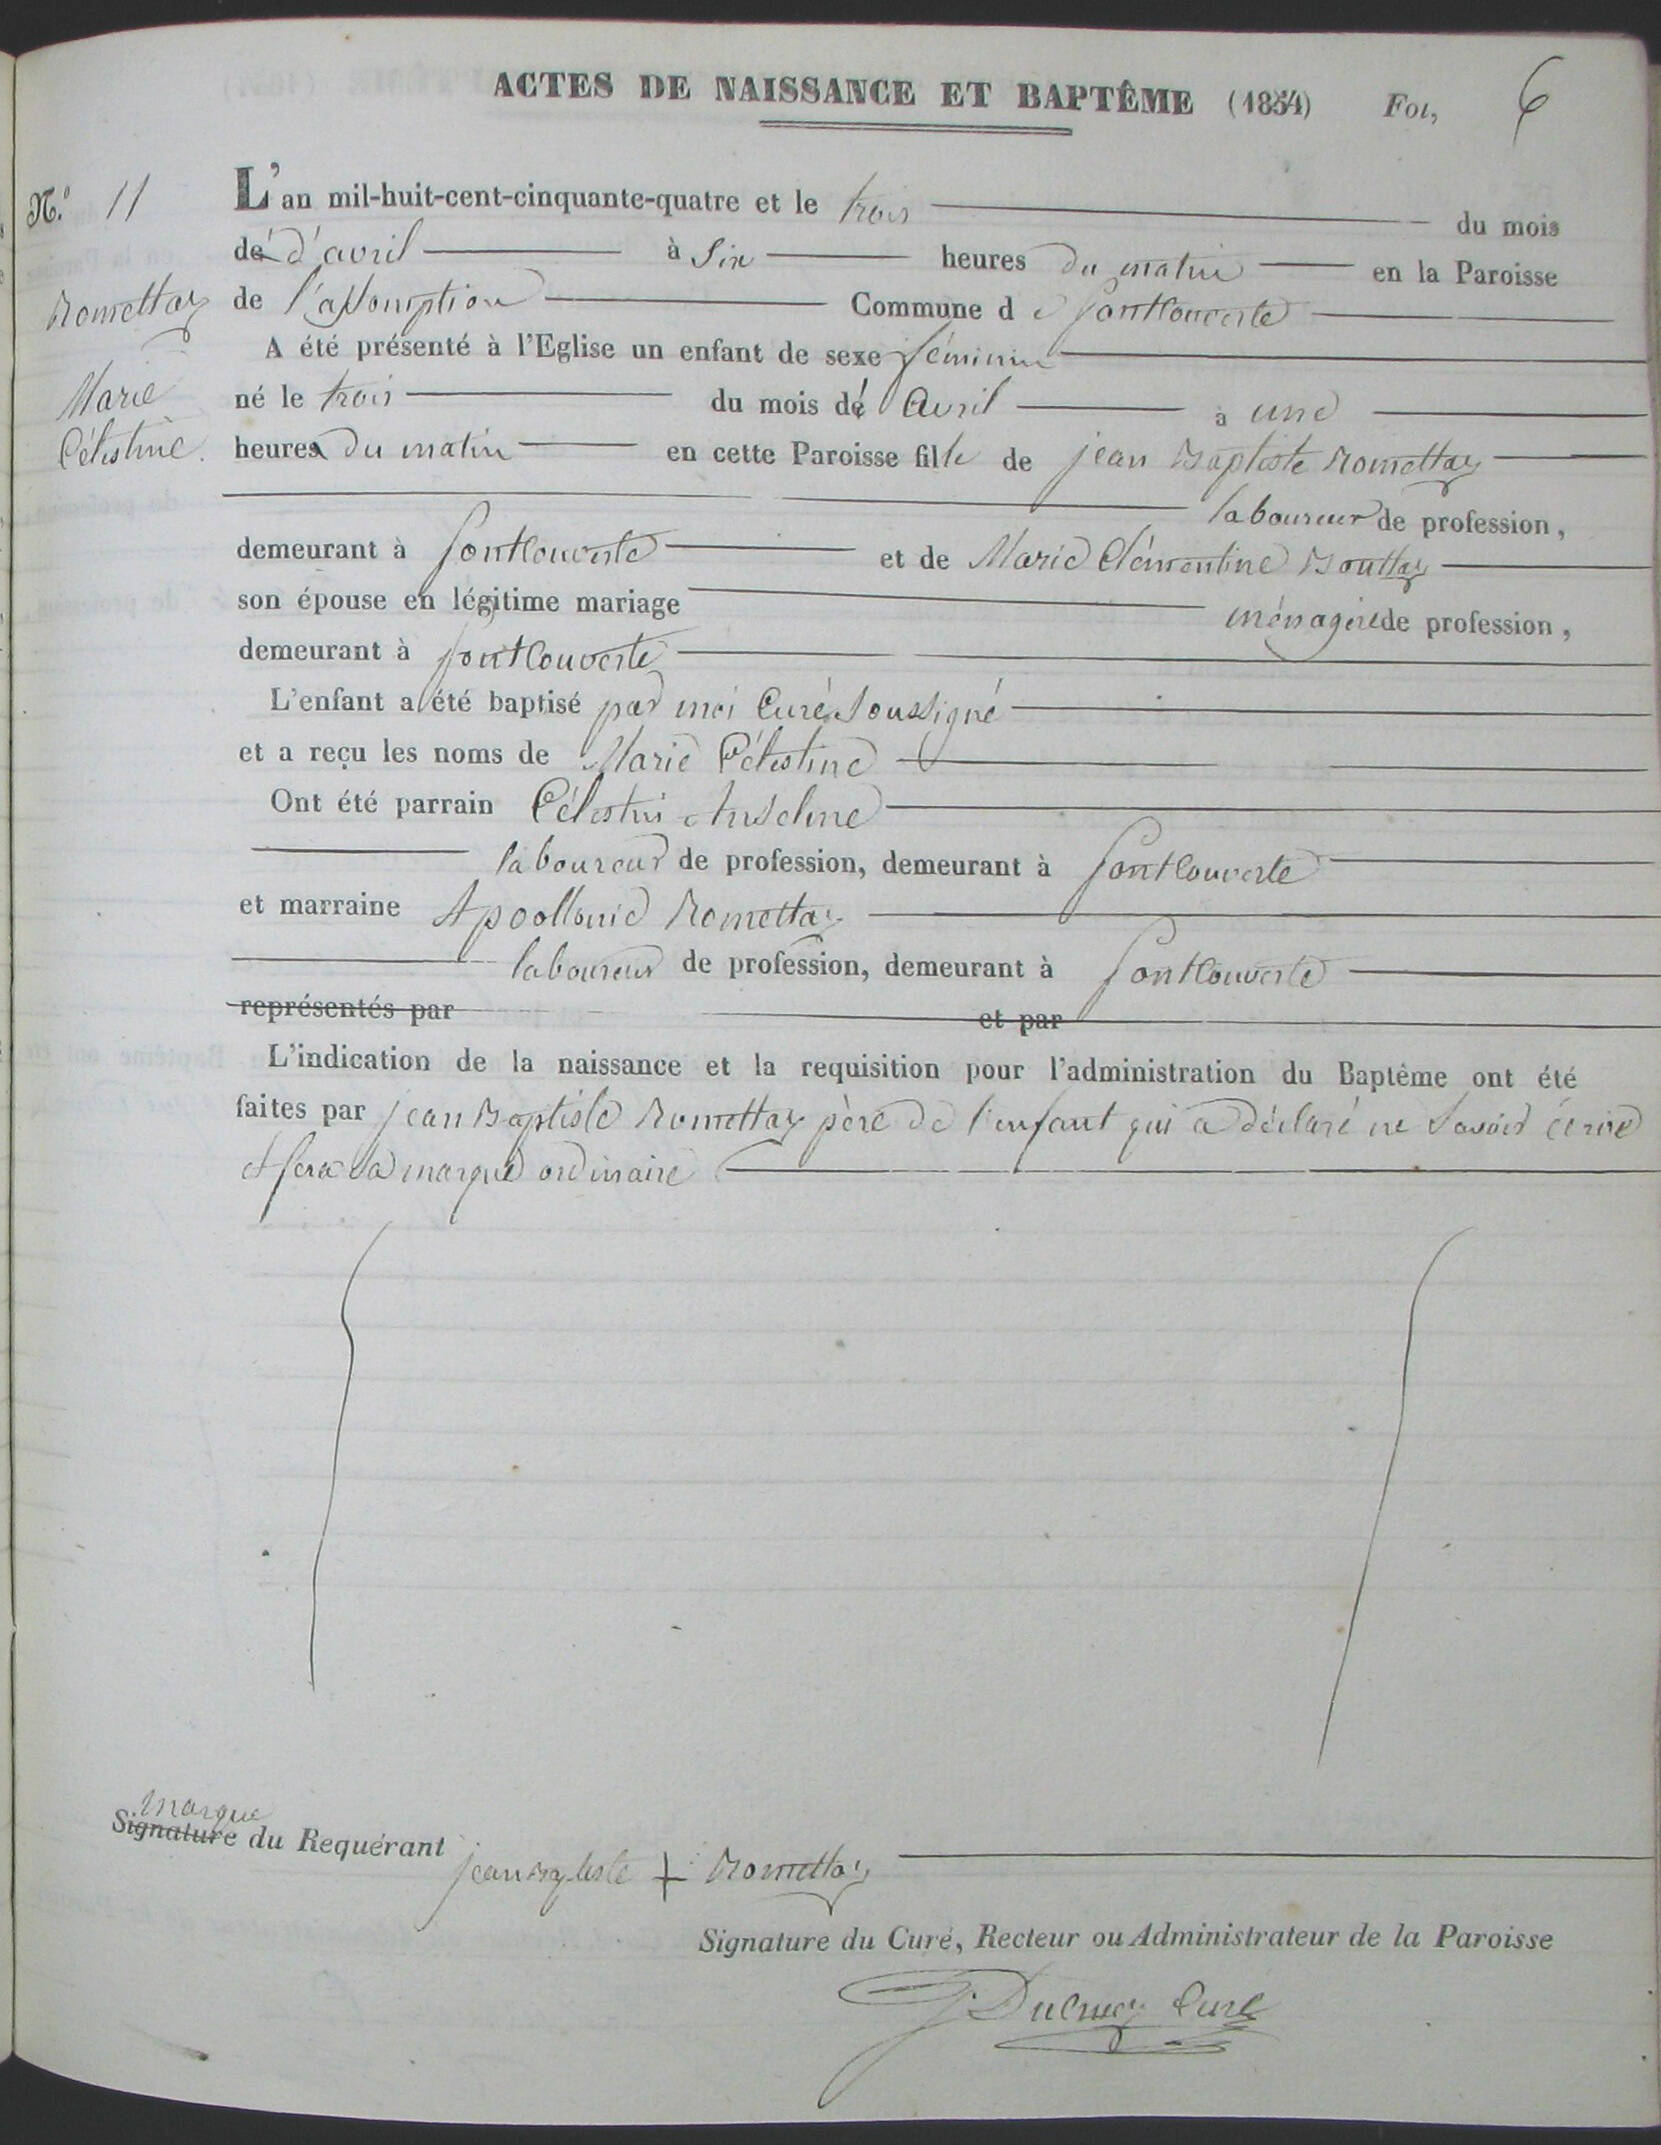 ACTES DE NAISSANCE ET BAPTÊME (1854) Fol, 6
N.º 11
L'an mil-huit-cent-cinquante-quatre et le trois du mois
de d'avril à Six heures du matin en la Paroisse
Romettaz
de l'assomption Commune d e fontcouverte
A été présenté à l'Eglise un enfant de sexe féminin
Marie
né le trois du mois de Avril à une
Célestine.
heures du matin en cette Paroisse fille de jean Baptiste Romettaz
laboureur de profession,
demeurant à fontcouverte et de Marie Clémentine Bouttaz
son épouse en légitime mariage ménagère de profession,
demeurant à fontcouverte
L'enfant a été baptisé par moi Curé Soussigné
et a reçu les noms de Marie Célestine
Ont été parrain Célestin Anselme
laboureur de profession, demeurant à fontcouverte
et marraine Apoollonie Romettaz
laboureur de profession, demeurant à fontcouverte
représentés par et par
L'indication de la naissance et la requisition pour l'administration du Baptême ont été
faites par jean Baptiste Romettaz père de l'enfant qui a déclaré ne Savoir écrire
et fera Sa marque ordinaire
marque
Signature du Requérant
jean Baptiste + Romettaz
Signature du Curé, Recteur ou Administrateur de la Paroisse
Curé